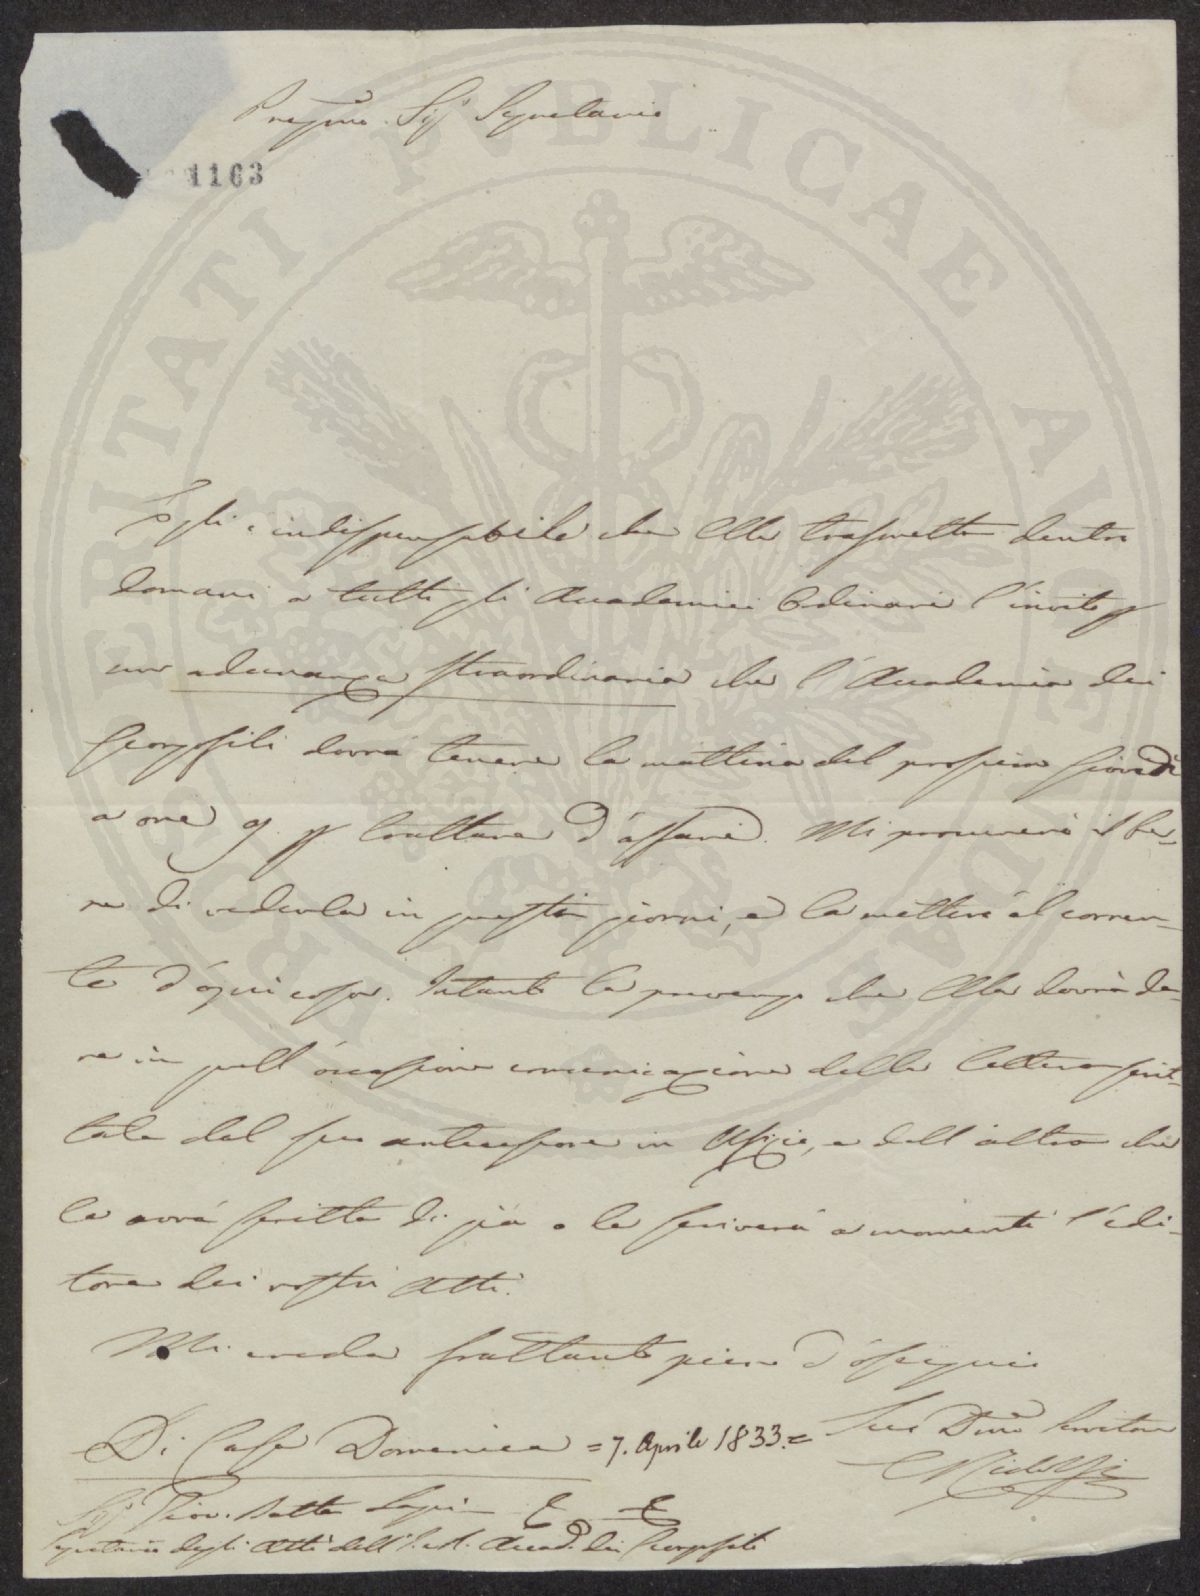 Pregmo. Sigr Segretario
1163
Egli è indispensabile che Ella trasmetta dentro
domani a tutti gli Accademici Ordinari l'invito p
una adunanza straordinaria che l'Accademia dei
Georgofili dovrà tenere la mattina del prossimo Giovedì
a ore 9. p trattare d'affari. Mi procurerò il be-
ne di vederla in questi giorni, e la metterò al corren-
te d'ogni cosa. Intanto la prevengo che Ella dovrà da-
re in quell'occasione comunicazione della lettera scrit-
tale dal suo antecessore in Ufizio, e dell'altra che
le avrà scritta di già o le scriverà a momenti l'edi-
tore dei nostri Atti.
Mi creda frattanto pieno d'ossequio
Di Casa Domenica = 7. Aprile 1833. =
Suo Dmo Servitore
CRidolfi
Sigr Giov. Batta
Segretario degli Atti dell'I. e R. Accad. dei Georgofili
PROSPERITATI PVBLICAE AVGENDAE